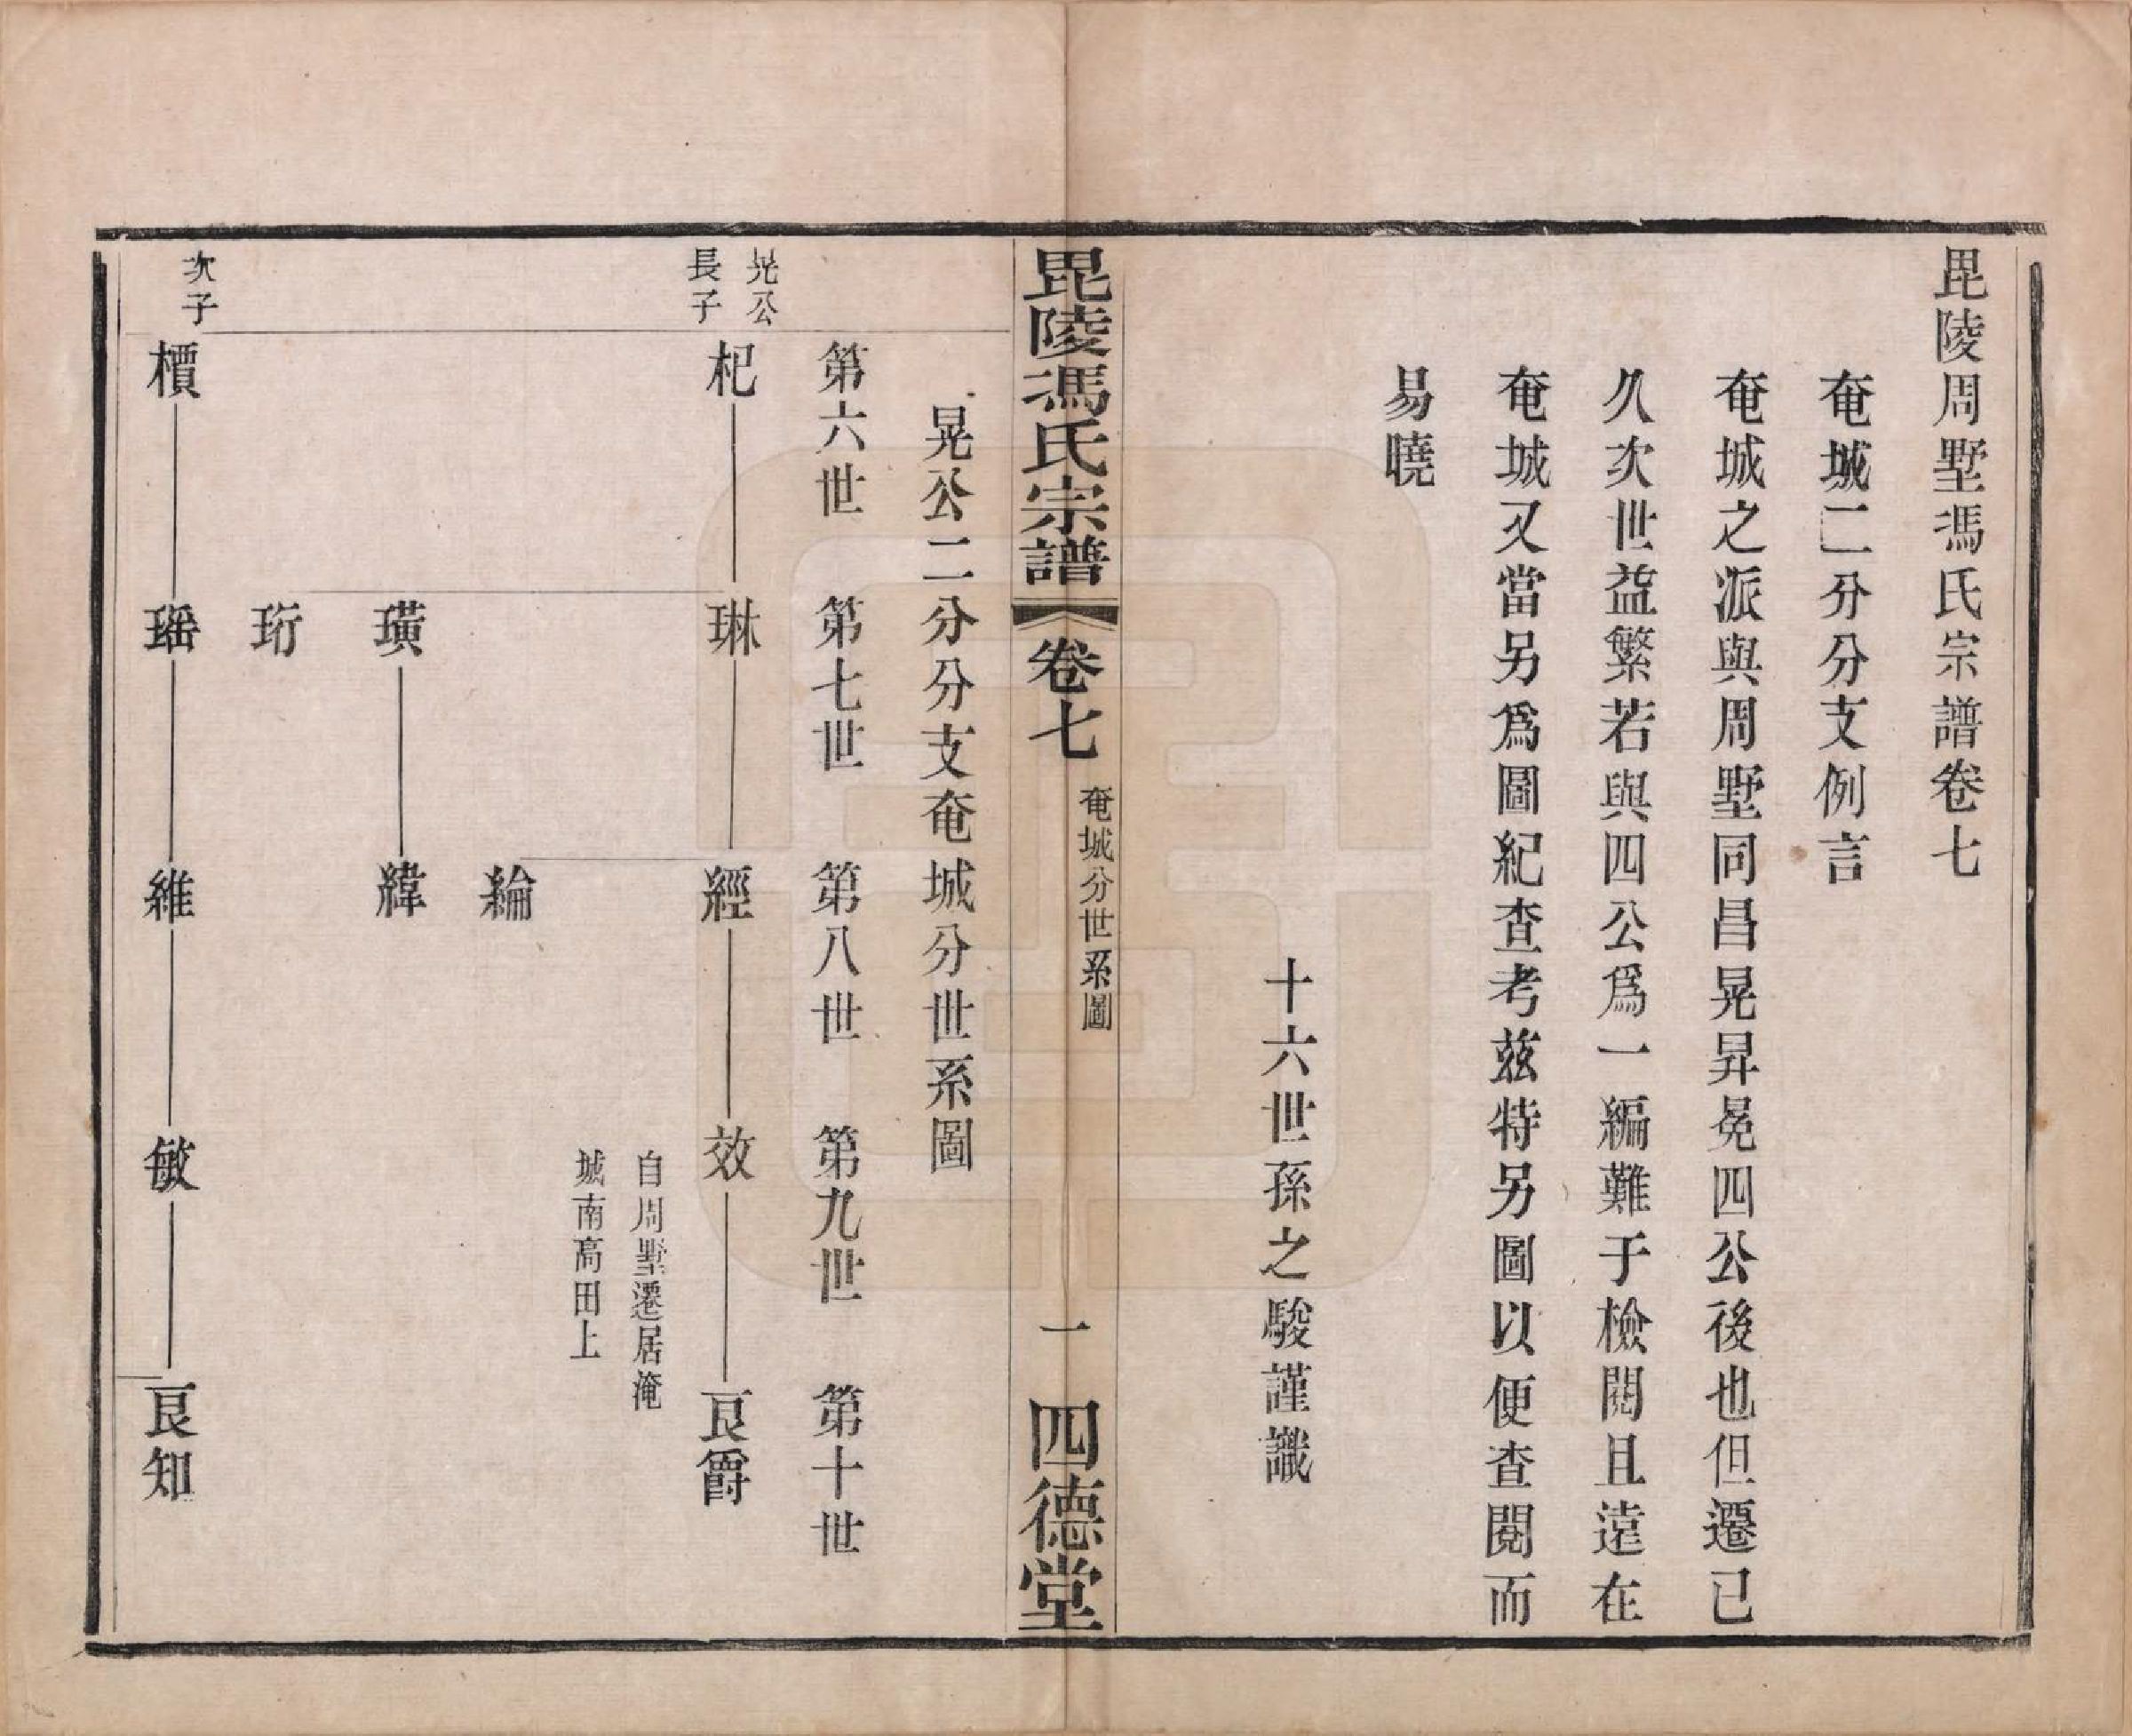 毘陵周墅馮氏宗譜卷七
奄城二分分支例言
奄城之派與周墅同昌晃昇冕四公後也但遷已
久次世益繁若與四公爲一編難于檢閱且遠在
奄城又當另爲圖紀查考茲特另圖以便查閱而
易曉
十六世孫之駿謹識
毘陵馮氏宗譜
卷七
奄城分世系圖
一
四德堂
晃公二分分支奄城分世系圖
第六世
第七世
第八世
第九世
第十世
晃公
長子
杞
琳
經
效
良爵
自周墅遷居淹
城南高田上
綸
璜
緯
珩
次子
櫝
瑶
維
敏
良知